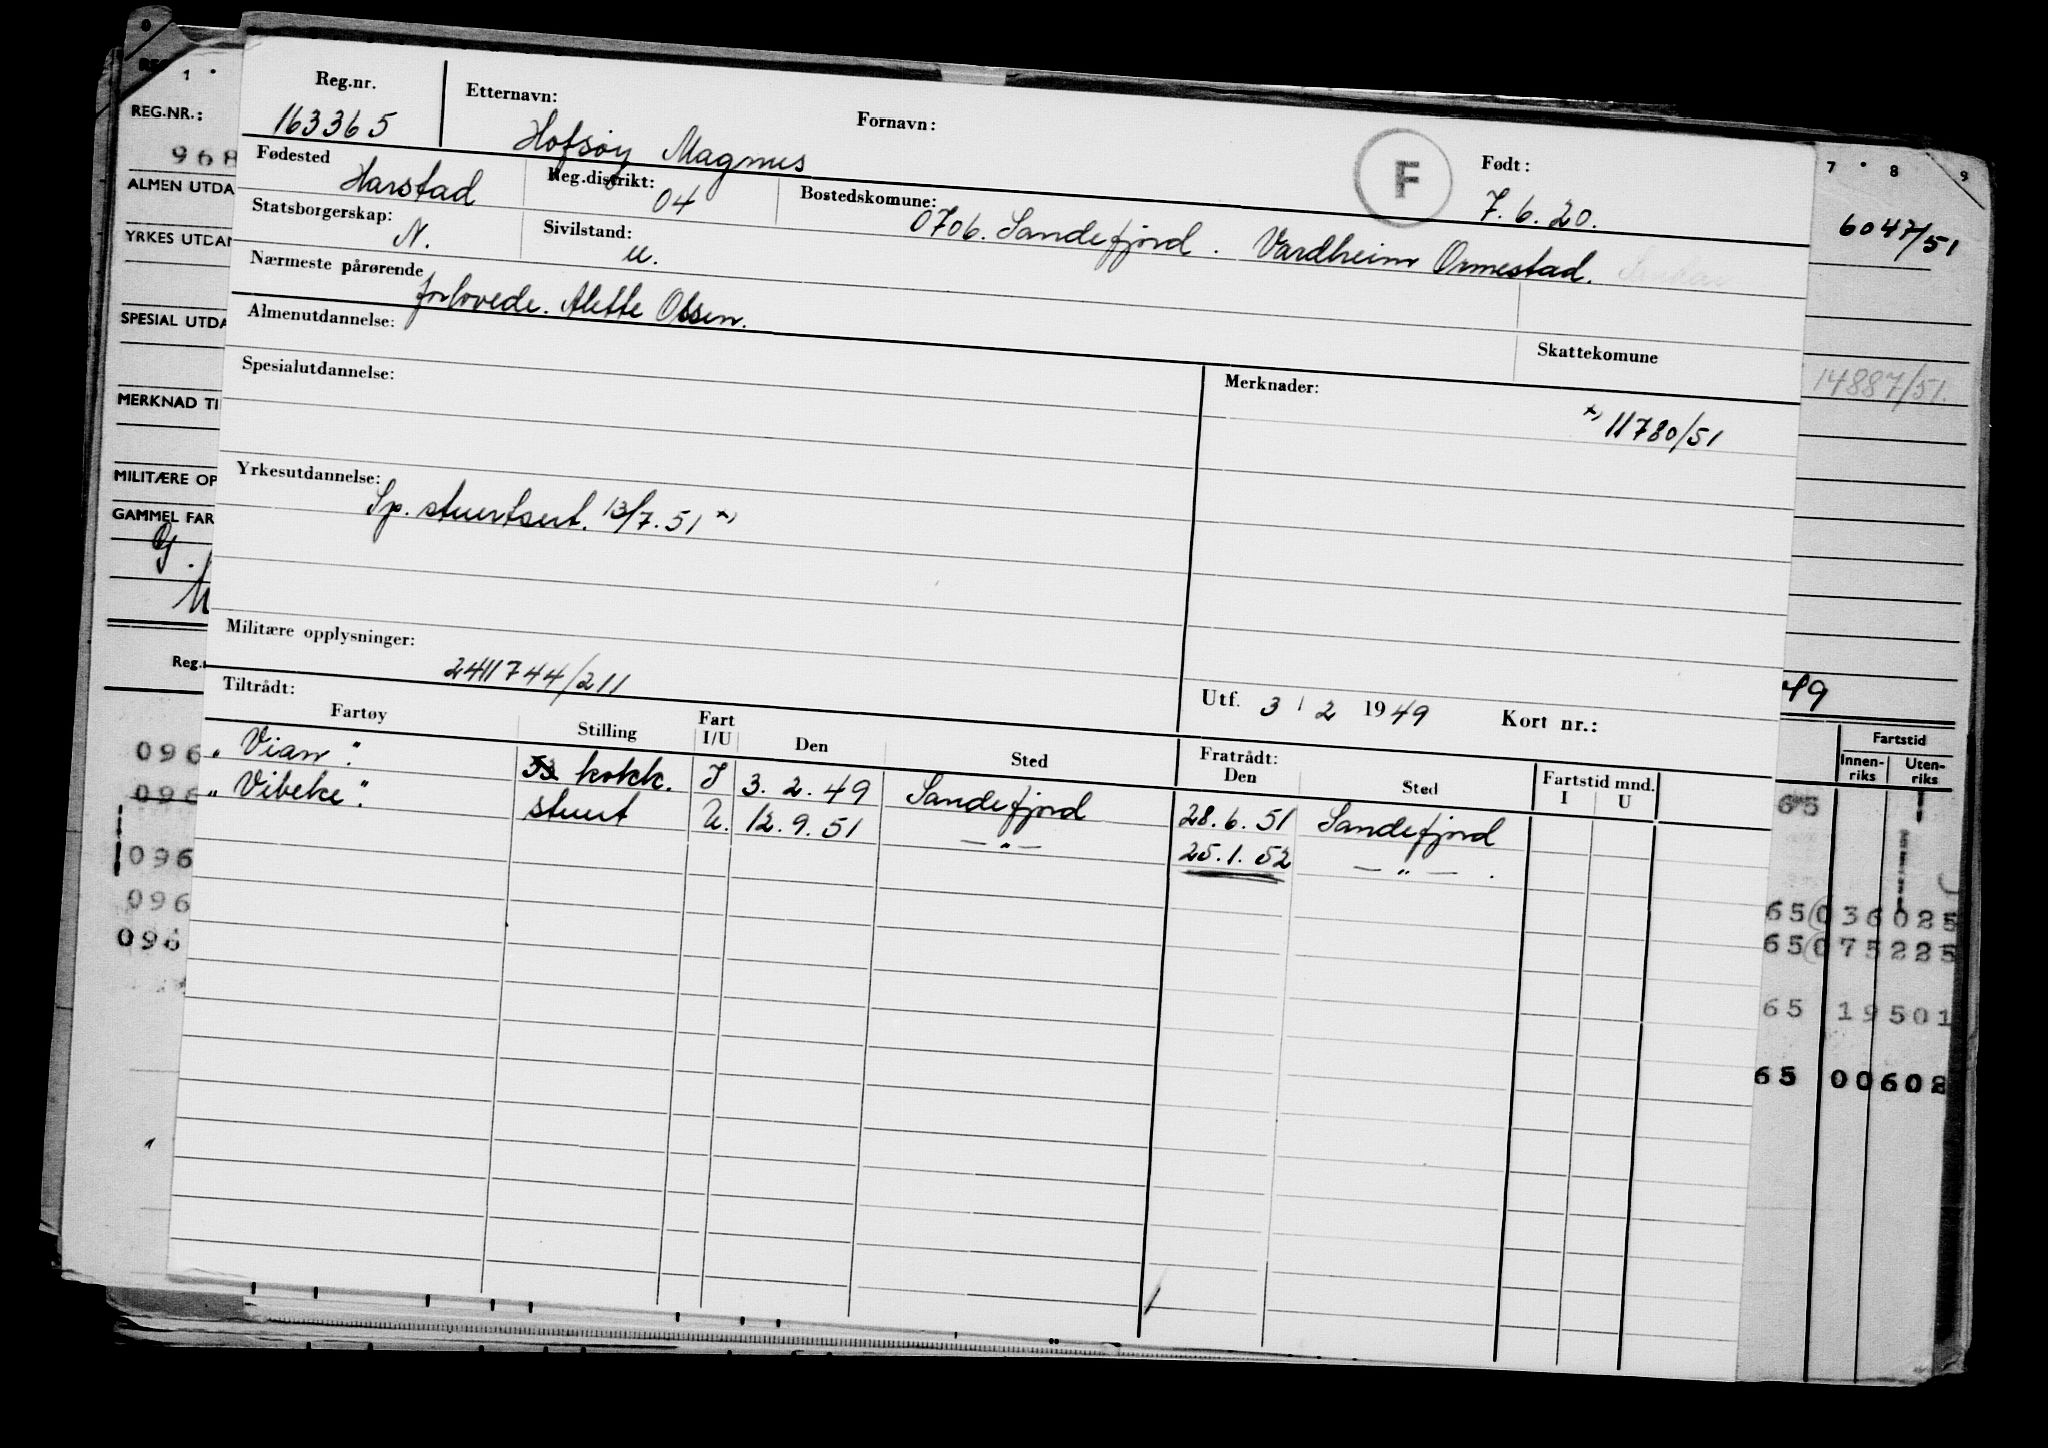 Reg.nr. Etternavn: Fornavn: Født:
163365 Hofsøy Magnus F 7.6.20.
Fødested Reg.distrikt: Bostedskomune:
Harstad 04 0706. Sandefjord. Vardheim Ormestad.
Statsborgerskap: Sivilstand:
N. u.
Nærmeste pårørende
forlovede. Alette Olsen.
Almenutdannelse: Skattekomune
Spesialutdannelse: Merknader:
x) 11780/51
Yrkesutdannelse:
Sp. stuertsert. 13/7.51 x)
Militære opplysninger:
2411744/211
Utf. 3 / 2 1949 Kort nr.:
Tiltrådt: Fratrådt:
Fartøy Stilling Fart I/U Den Sted Den Sted Fartstid mnd. I U
"Vian". kokk. I 3.2.49 Sandefjord 28.6.51 Sandefjord
"Vibeke". stuert U. 12.9.51 — " — 25.1.52 — " — .
0
1 7 8 9
REG.NR.:
968
ALMEN UTDA
6047/51
YRKES UTDAN
SPESIAL UTDA
14887/51.
MERKNAD TI
MILITÆRE OP
GAMMEL FAR
G.
Reg.
49
Fartstid
Innen-riks Uten-riks
096 65
096
096
096 65 036 025
096 65 075225
65 19501
65 00602